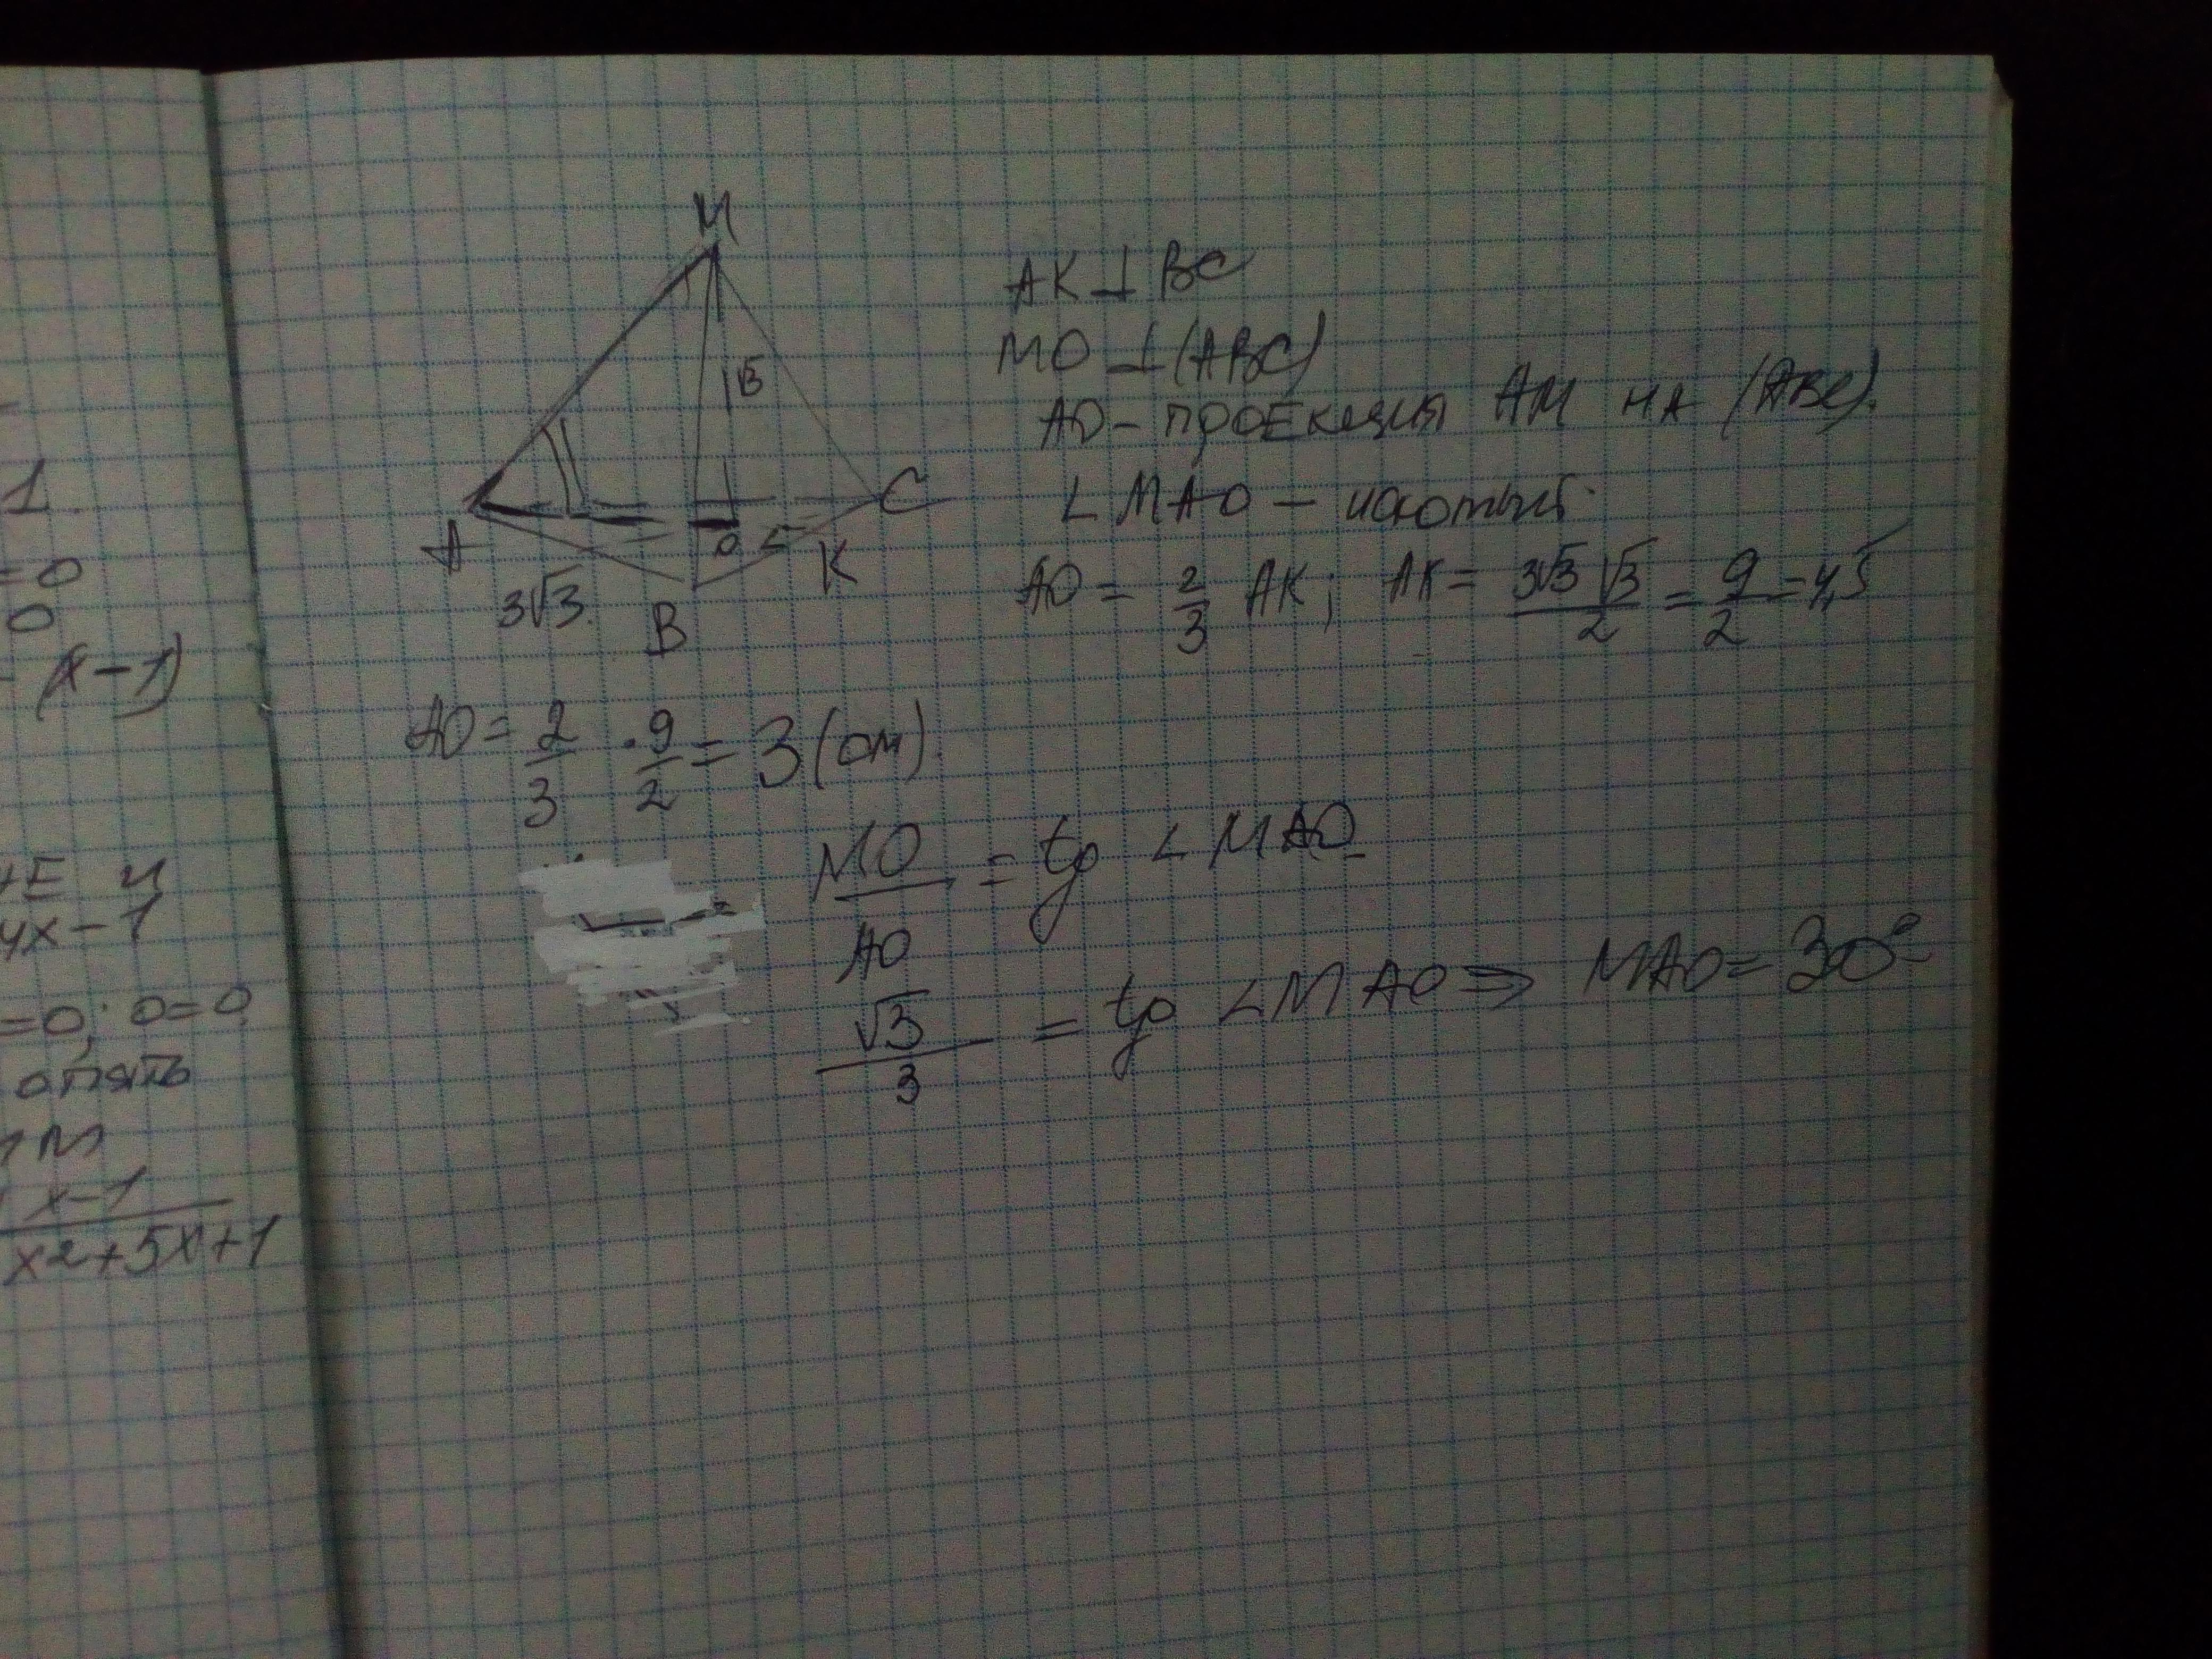 1.
=0
0
- (x-1)
+E и
4x-1
=0; 0=0
опять
x-1
x2+5x+1
M
√3
A
O
C
K
3√3.
B
AK ⊥ BC
MO ⊥ (ABC)
AO - проекция AM на (ABC).
∠ MAO - искомый.
AO = 2/3 AK; AK = 3√3 √3/2 = 9/2 = 4,5
AO = 2/3 · 9/2 = 3 (см).
MO/AO = tg ∠ MAO
√3/3 = tg ∠ MAO ⇒ MAO = 30°